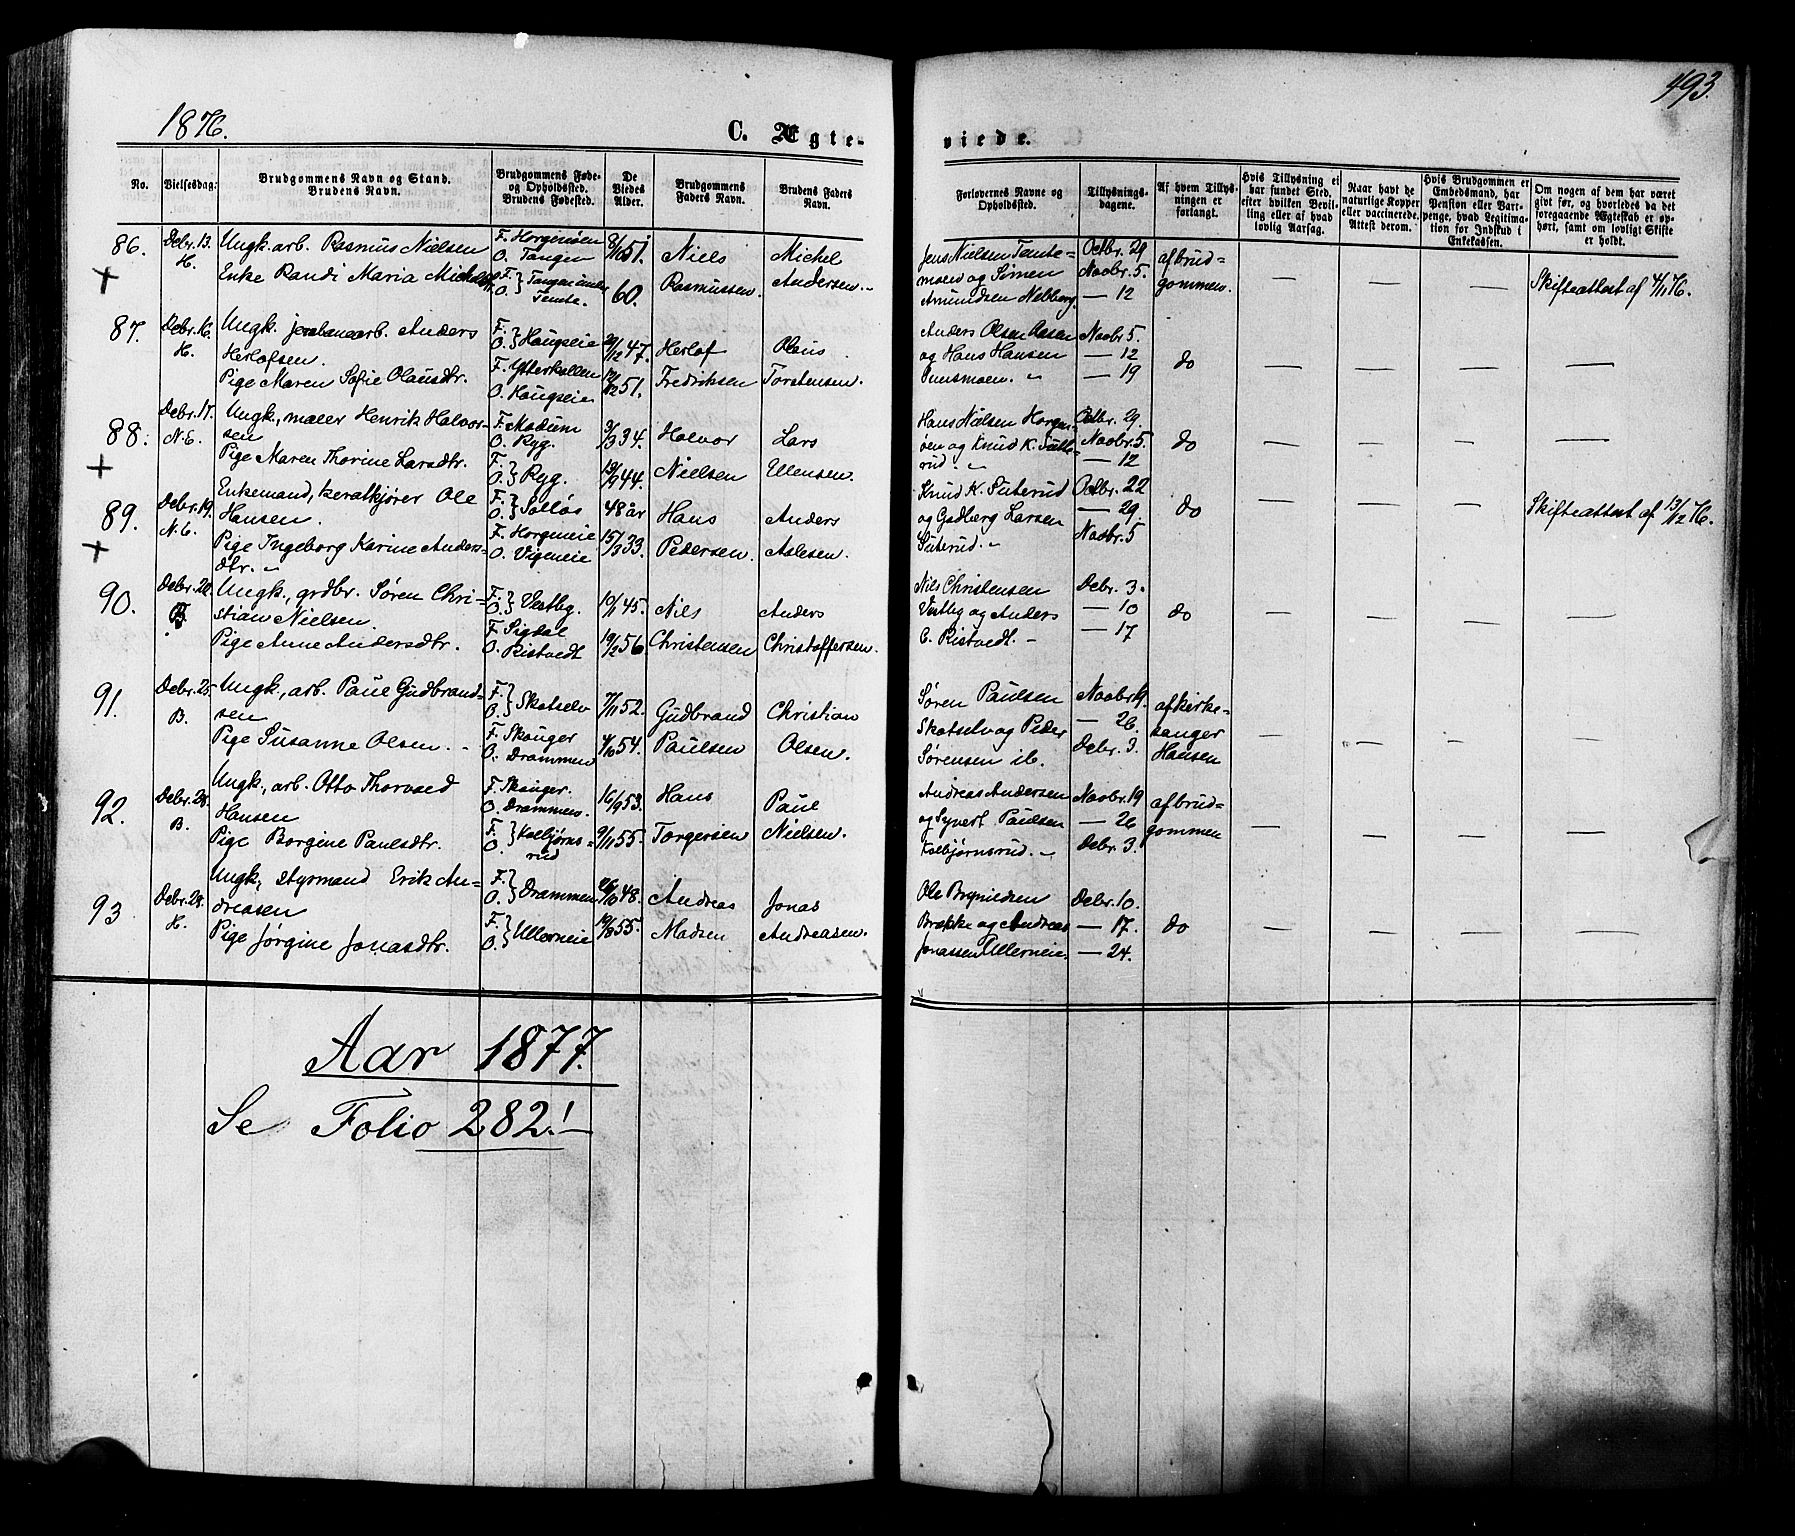 1876.
C. Ægte-
No.
Vielsesdag.
Brudgommens Navn og Stand.
Brudens Navn.
Brudgommens Føde-
og Opholdssted.
Brudens Fødested.
De
Viedes
Alder.
Brudgommens
Faders Navn.
Brudens Faders
Navn.
86. Debr. 13. Ungk. arb. Rasmus Nielsen F. Horgenøen 51. Niels Michel
H. Enke Randi Maria O. Tangen 60. Rasmussen. Andersen.
87. Debr. 16. Ungk. Anders F. O. Haugseie 47. Herlof Olaus
H. Herlofsen. F. Ytterkollen 51. Fredriksen Torstensen.
Pige Maren Sofie Olausdtr. O. Haugseie
88. Debr. 17. Ungk., maler Henrik Halvor- F. Modum 34. Halvor Lars
N.6. sen O. Ryg.
Pige Maren Thorine Larsdtr. F. O. Ryg. 44. Nielsen Ellensen.
89. Debr. 19. Enkemand, Ole F. O. 48 år Hans Anders
N.6. Hansen. F. Horgeneie 33. Pedersen. Aslesen.
Pige Ingeborg Karine Anders- O. Vigeneie
dtr.
90. Debr. 20. Ungk., grdbr. Søren Chri- F. O. Vestby. 10/11 45. Nils Anders
stian Nielsen. F. Sigdal
Pige Anne Andersdtr. O. Ristvedt 19/2 56 Christensen Christoffersen.
91. Debr. 25. Ungk., arb. Paul Gudbrand- F. O. Skotselv 7/11 52. Gudbrand Christian
B. sen F. Skouger
Pige Susanne Olsen. O. Drammen 4/10 54. Paulsen Olsen.
92. Debr. 28. Ungk., arb. Otto Thorvald F. Skouger. 16/9 53. Hans Paul
B. Hansen O. Drammen.
Pige Borgine Paulsdtr. F. O. Kolbjørns- 9/11 55. Torgersen Nielsen.
rud
93 Debr. 28. Ungk, styrmand Erik An- F. O. Drammen 48. Andreas Jonas
H. dreasen
Pige Jørgine Jonasdtr. F. O. Ullerneie 19/8 55. Madsen Andreasen.
Aar 1877.
Se Folio 282!
493.
viede.
Forlovernes Navne og
Opholdssted.
Tillysnings-
dagene.
Af hvem Tillys-
ningen er
forlangt.
Hvis Tillysning ei
har fundet Sted,
efter hvilken Bevil-
ling eller af hvad
lovlig Aarsag.
Naar havt de
naturlige Kopper
eller vaccinerede.
Attest derom.
Hvis Brudgommen er
Embedsmand, har
Pension eller Vart-
penge, hvad Legitima-
tion for Indskud i
Enkekassen.
Om nogen af dem har været
givt før, og hvorledes da det
foregaaende Ægteskab er op-
hørt, samt om lovligt Skifte
er holdt.
Jens Nielsen Tante- Octbr. 29 af brud-
moen og Simen Novbr. 5. gommen — — — Skifteattest af 4/11 76.
Amundsen Nebberg. — 12
Anders Olsen Aasen Novbr. 5.
og Hans Hansen — 12 do — — — —
— 19
Hans Nielsen Horgen- Octbr. 29.
øen og Knud K. Novbr. 5 do — — — —
rud. — 12
Knud K. Octbr. 22
og Gudberg Larsen — 29. do — — — Skifteattest af 13/12 76.
Novbr. 5
Nils Christensen Debr. 3.
Vestby og Anders — 10 do — — — —
C. Ristvedt. — 17
Søren Paulsen Novbr. 19. af kirke-
Skotselv og Peder — 26. sanger — — — —
Sørensen ib. Debr. 3. Hansen
Andreas Andersen Novbr. 19 af brud-
og Syvert Paulsen — 26 gommen — — — —
Kolbjørnsrud. Debr. 3.
Ole Debr. 10.
Brække og Andreas — 17. do — — — —
Jonassen Ullerneie. — 24.